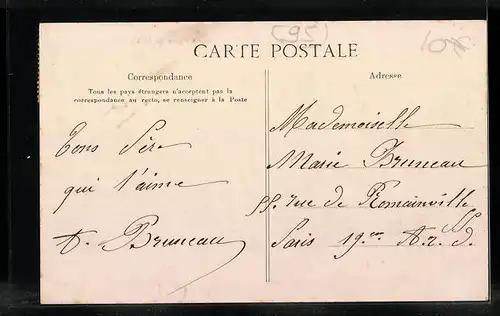 (95)
10€
CARTE POSTALE
Correspondance
Tous les pays étrangers n'acceptent pas la
correspondance au recto, se renseigner à la Poste
Adresse
Tons Père
qui t'aime
A. Bruneau
Mademoiselle
Marie Bruneau
55. rue de Romainville
Paris 19em Ar. d.